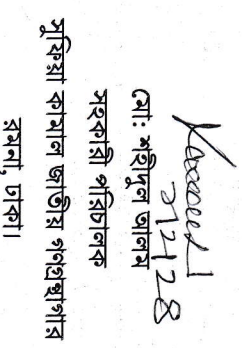 মো: শহীদুল আলম
সহকারি পরিচালক
সুফিয়া কামাল জাতীয় গণগ্রন্থাগার
রমনা, ঢাকা।